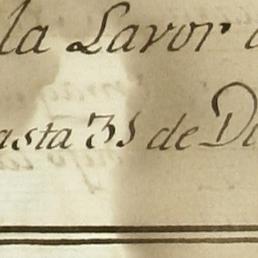 la Lavor
asta 31 de Di